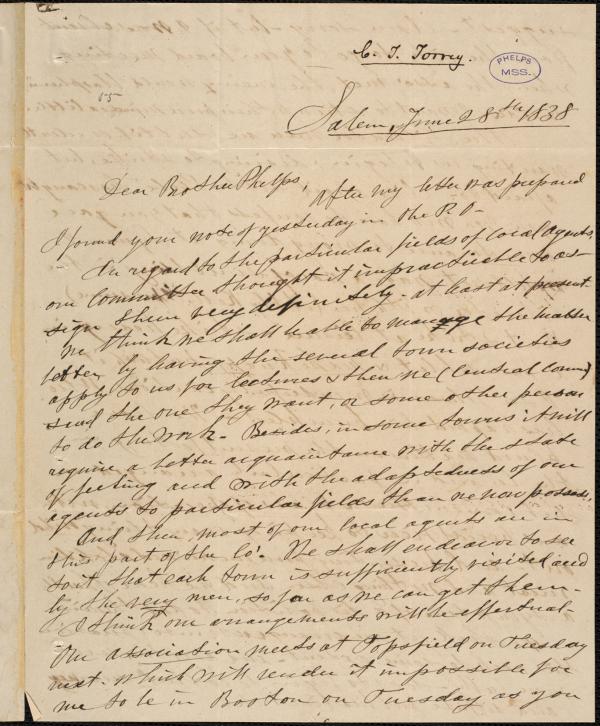 C. T. Torrey.
PHELPS
MSS.
55
Salem, June 28th 1838
Dear Brother Phelps,
After my letter was prepared
I found your note of yesterday in the P.O-
In regard to the particular fields of local agents,
our Committee thought it impracticable to as-
sign them very definitely - at least at present.
We think we shall be able to manage the matter
better by having the several town societies
apply to us for lectures & then we (Central Comm)
send the one they want, or some other person
to do the work. Besides, in some towns it will
require a better acquaintance with the state
of feeling and with the adaptedness of our
agents to particular fields than we now possess.
And then, most of our local agents are in
this part of the Co'. We shall endeavor to see
to it, that each town is sufficiently visited and
by the very men, so far as we can get them-
I think our arrangements will be effectual-
Our association meets at Topsfield on Tuesday
next. which will render it impossible for
me to be in Boston on Tuesday as you